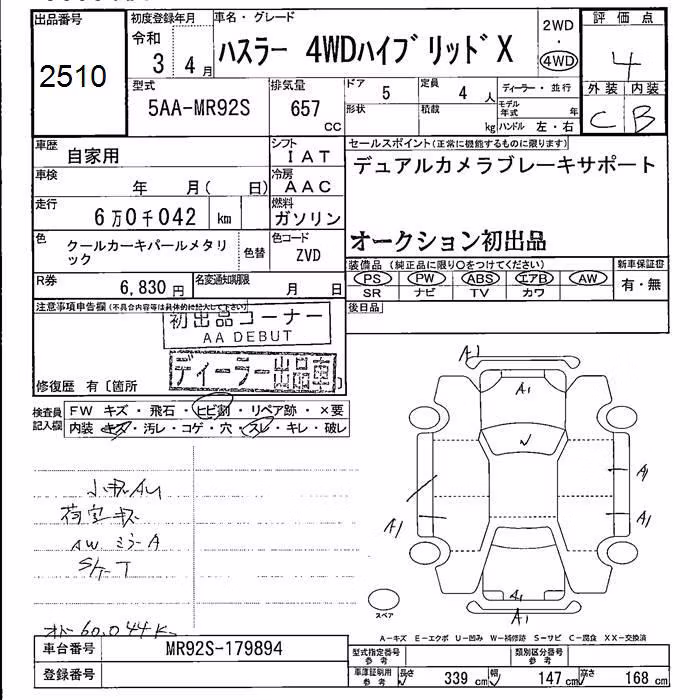 出品番号
2510
初度登録年月
令和
3 4月
車名・グレード
ハスラー 4WDハイブリッドX
2WD
・
4WD
評価点
4
外装 内装
C B
型式
5AA-MR92S
排気量
657
CC
ドア
5
定員
4 人
形状
積載
kg
ディーラー・並行
モデル年式 年
ハンドル 左・右
車歴
自家用
シフト
IAT
車検
年 月( 日)
冷房
AAC
走行
6万0千042 km
燃料
ガソリン
色
クールカーキパールメタリ
ック
色替
色コード
ZVD
R券
6,830円
名変通知期限
月 日
セールスポイント(正常に機能するものに限ります)
デュアルカメラブレーキサポート
オークション初出品
装備品(純正品に限り○をつけてください)
PS PW ABS エアB AW
SR ナビ TV カワ
新車保証書
有・無
後日品
注意事項申告欄(不具合内容等は具体的に記入して下さい)
初出品コーナー
AA DEBUT
ディーラー出品車
修復歴 有〔箇所 〕
検査員
記入欄
FW キズ・飛石・ヒビ割・リペア跡・×要
内装 キズ・汚レ・コゲ・穴・スレ・キレ・破レ
小キズAU
荷室キズ
AW ミラーA
オドー60,044K
A1
A1
W
A1
A1
A1
A1
A1
スペア
A-キズ E-エクボ U-凹み W-補修跡 S-サビ C-腐食 XX-交換済
車台番号
MR92S-179894
登録番号
型式指定番号
参考
類別区分番号
参考
車庫証明用
参考
長さ 339 cm 幅 147 cm 高さ 168 cm